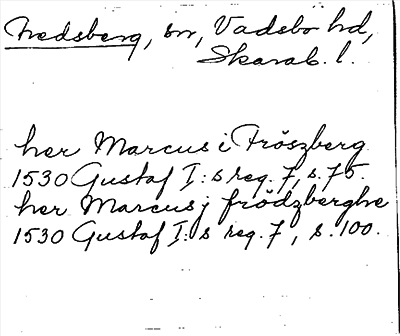 Fredsberg, sn, Vadsbo hd,
Skarab. l.
her Marcus i Fröszberg
1530 Gustaf I:s reg. 7, s. 75.
her Marcus j frödzberghe
1530 Gustaf I:s reg. 7, s. 100.